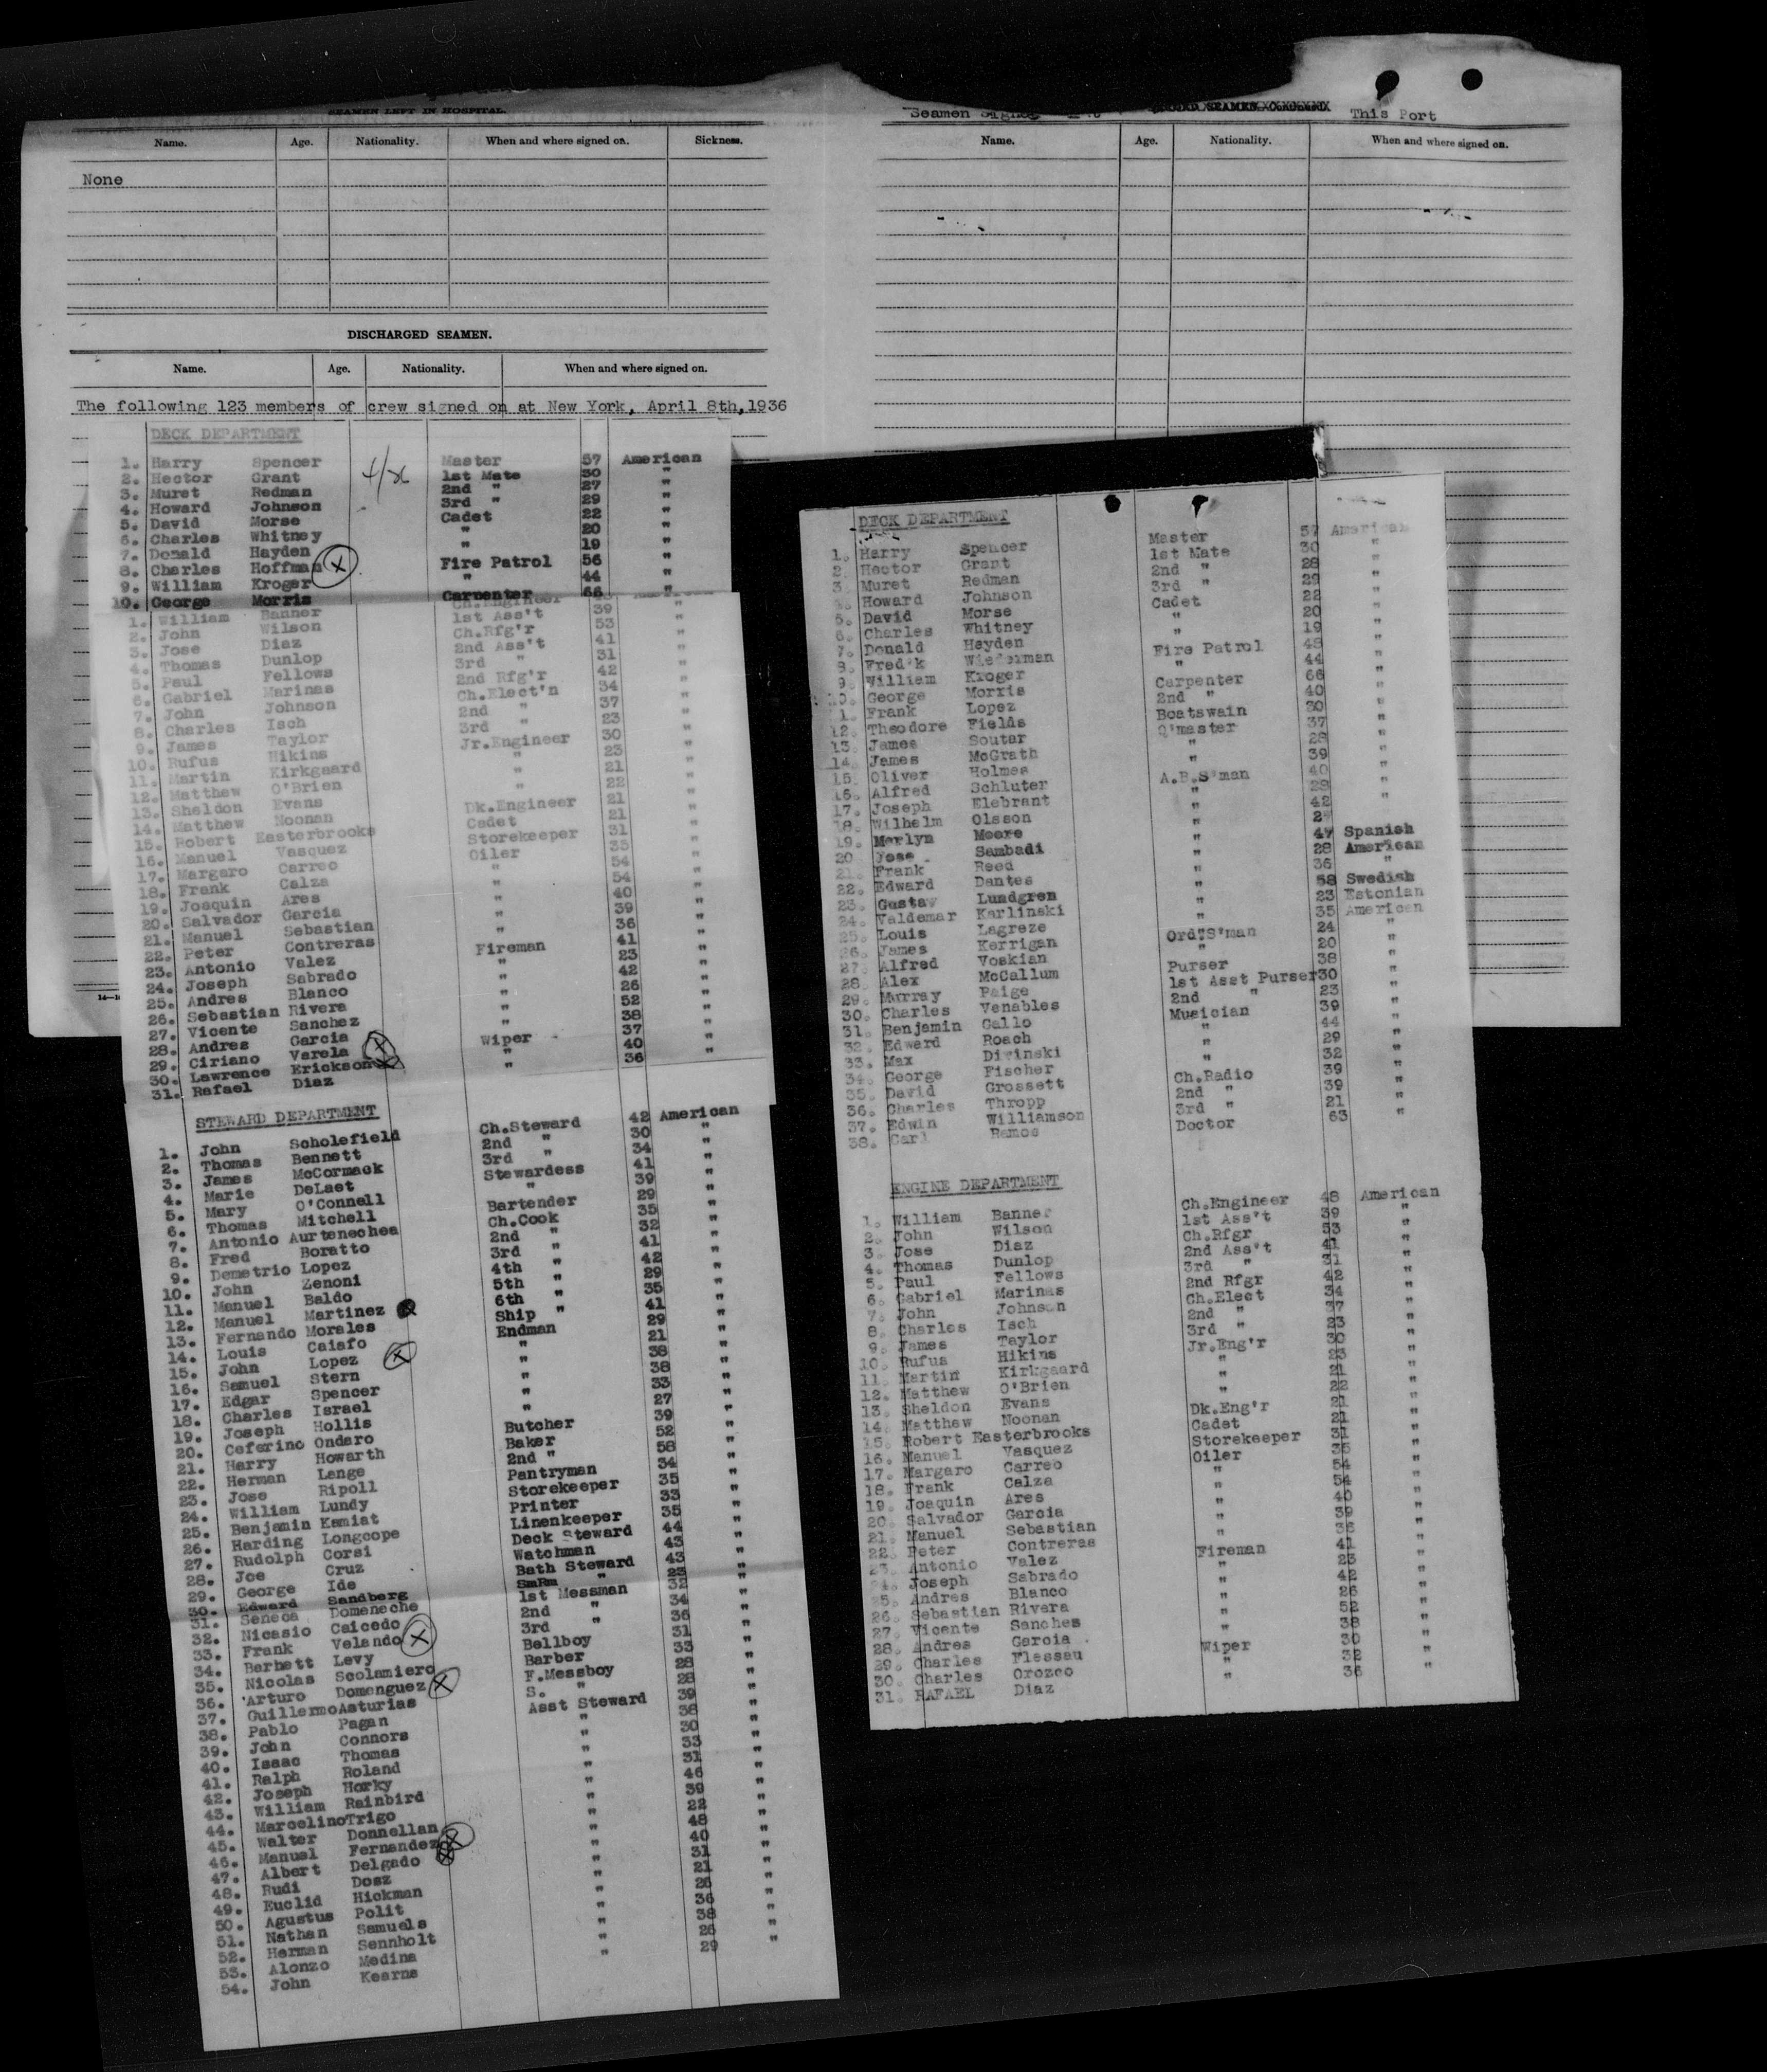 SEAMEN LEFT IN HOSPITAL.
Name. Age. Nationality. When and where signed on. Sickness.
None
DISCHARGED SEAMEN.
Name. Age. Nationality. When and where signed on.
The following 123 members of crew signed on at New York, April 8th,1936
DECK DEPARTMENT
4/36
1. Harry Spencer Master 57 American
2. Hector Grant 1st Mate 30 "
3. Muret Redman 2nd " 27 "
4. Howard Johnson 3rd " 29 "
5. David Morse Cadet 22 "
6. Charles Whitney " 20 "
7. Donald Hayden " 19 "
8. Charles Hoffman X Fire Patrol 56 "
9. William Kroger " 44 "
10. George Morris Carpenter 66 "
1. William Banner Ch.Engineer
2. John Wilson 1st Ass't 39 "
3. Jose Diaz Ch.Rfg'r 53 "
4. Thomas Dunlop 2nd Ass't 41 "
5. Paul Fellows 3rd " 31 "
6. Gabriel Marinas 2nd Rfg'r 42 "
7. John Johnson Ch.Elect'n 34 "
8. Charles Isch 2nd " 37 "
9. James Taylor 3rd " 23 "
10. Rufus Hikins Jr.Engineer 30 "
11. Martin Kirkgaard " 23 "
12. Matthew O'Brien " 21 "
13. Sheldon Evans " 22 "
14. Matthew Noonan Dk.Engineer 21 "
15. Robert Easterbrooks Cadet 21 "
16. Manuel Vasquez Storekeeper 31 "
17. Margaro Carreo Oiler 35 "
18. Frank Calza " 54 "
19. Joaquin Ares " 54 "
20. Salvador Garcia " 40 "
21. Manuel Sebastian " 39 "
22. Peter Contreras " 36 "
23. Antonio Valez Fireman 41 "
24. Joseph Sabrado " 23 "
25. Andres Blanco " 42 "
26. Sebastian Rivera " 26 "
27. Vicente Sanchez " 52 "
28. Andres Garcia " 38 "
29. Ciriano Varela X Wiper 37 "
30. Lawrence Erickson X " 40 "
31. Rafael Diaz " 36 "
STEWARD DEPARTMENT
1. John Scholefield Ch.Steward 42 American
2. Thomas Bennett 2nd " 30 "
3. James McCormack 3rd " 34 "
4. Marie DeLaet Stewardess 41 "
5. Mary O'Connell " 39 "
6. Thomas Mitchell Bartender 29 "
7. Antonio Aurtenechea Ch.Cook 35 "
8. Fred Boratto 2nd " 32 "
9. Demetrio Lopez 3rd " 41 "
10. John Zenoni 4th " 42 "
11. Manuel Baldo 5th " 29 "
12. Manuel Martinez 6th " 35 "
13. Fernando Morales Ship " 41 "
14. Louis Caiafo Endman 29 "
15. John Lopez X " 21 "
16. Samuel Stern " 38 "
17. Edgar Spencer " 38 "
18. Charles Israel " 33 "
19. Joseph Hollis " 27 "
20. Ceferino Ondaro Butcher 39 "
21. Harry Howarth Baker 52 "
22. Herman Lange 2nd " 58 "
23. Jose Ripoll Pantryman 34 "
24. William Lundy Storekeeper 35 "
25. Benjamin Kamiat Printer 33 "
26. Harding Longcope Linenkeeper 35 "
27. Rudolph Corsi Deck Steward 44 "
28. Joe Cruz Watchman 43 "
29. George Ide Bath Steward 43 "
30. Edward Sandberg SmRm " 25 "
31. Seneca Domeneche 1st Messman 32 "
32. Nicasio Caicedo 2nd " 34 "
33. Frank Velando X 3rd " 36 "
34. Barhett Levy Bellboy 31 "
35. Nicolas Scolamiero Barber 33 "
36. Arturo Domenguez X F.Messboy 28 "
37. Guillermo Asturias S. " 28 "
38. Pablo Pagan Asst Steward 39 "
39. John Connors " 38 "
40. Isaac Thomas " 30 "
41. Ralph Roland " 33 "
42. Joseph Horky " 31 "
43. William Rainbird " 46 "
44. Marcelino Trigo " 39 "
45. Walter Donnellan X " 22 "
46. Manuel Fernandez X " 48 "
47. Albert Delgado " 40 "
48. Rudi Dosz " 31 "
49. Euclid Hickman " 21 "
50. Agustus Polit " 26 "
51. Nathan Samuels " 36 "
52. Herman Sennholt " 38 "
53. Alonzo Medina " 26 "
54. John Kearns " 29 "
Seamen Signed This Port
Name. Age. Nationality. When and where signed on.
DECK DEPARTMENT
1. Harry Spencer Master 57 American
2. Hector Grant 1st Mate 30 "
3. Muret Redman 2nd " 28 "
Howard Johnson 3rd " 29 "
5. David Morse Cadet 22 "
6. Charles Whitney " 20 "
7. Donald Hayden " 19 "
8. Fred'k Wiederman Fire Patrol 48 "
9. William Kroger " 44 "
10. George Morris Carpenter 66 "
1. Frank Lopez 2nd " 40 "
12. Theodore Fields Boatswain 30 "
13. James Soutar Q'master 37 "
14. James McGrath " 28 "
15. Oliver Holmes " 39 "
16. Alfred Schluter A.B.S'man 40 "
17. Joseph Elebrant " 28 "
18. Wilhelm Olsson " 42 "
19. Merlyn Moore "
20 Jose Sambadi " 47 Spanish
21. Frank Reed " 28 American
22. Edward Dantes " 36 "
23. Gustav Lundgren " 58 Swedish
24. Valdemar Karlinski " 23 Estonian
25. Louis Lagreze " 35 American
26. James Kerrigan Ord"S'man 24 "
27. Alfred Voskian " 20 "
28. Alex McCallum Purser 38 "
29. Murray Paige 1st Asst Purser 30 "
30. Charles Venables 2nd " 23 "
31. Benjamin Gallo Musician 39 "
32. Edward Roach " 44 "
33. Max Divinski " 29 "
34. George Fischer " 32 "
35. David Grossett Ch.Radio 39 "
36. Charles Thropp 2nd " 39 "
37. Edwin Williamson 3rd " 21 "
38. Carl Ramos Doctor 63 "
ENGINE DEPARTMENT
1. William Banner Ch.Engineer 48 American
2. John Wilson 1st Ass't 39 "
3. Jose Diaz Ch.Rfgr 53 "
4. Thomas Dunlop 2nd Ass't 41 "
5. Paul Fellows 3rd " 31 "
6. Gabriel Marinas 2nd Rfgr 42 "
7. John Johnson Ch.Elect 34 "
8. Charles Isch 2nd " 37 "
9. James Taylor 3rd " 23 "
10. Rufus Hikins Jr.Eng'r 30 "
11. Martin Kirkgaard " 23 "
12. Matthew O'Brien " 21 "
13. Sheldon Evans " 22 "
14. Matthew Noonan Dk.Eng'r 21 "
15. Robert Easterbrooks Cadet 21 "
16. Manuel Vasquez Storekeeper 31 "
17. Margaro Carreo Oiler 35 "
18. Frank Calza " 54 "
19. Joaquin Ares " 54 "
20. Salvador Garcia " 40 "
21. Manuel Sebastian " 39 "
22. Peter Contreras " 36 "
23. Antonio Valez Fireman 41 "
24. Joseph Sabrado " 23 "
25. Andres Blanco " 42 "
26. Sebastian Rivera " 26 "
27. Vicente Sanches " 52 "
28. Andres Garcia " 38 "
29. Charles Flessau Wiper 30 "
30. Charles Orozco " 32 "
31. RAFAEL Diaz " 36 "